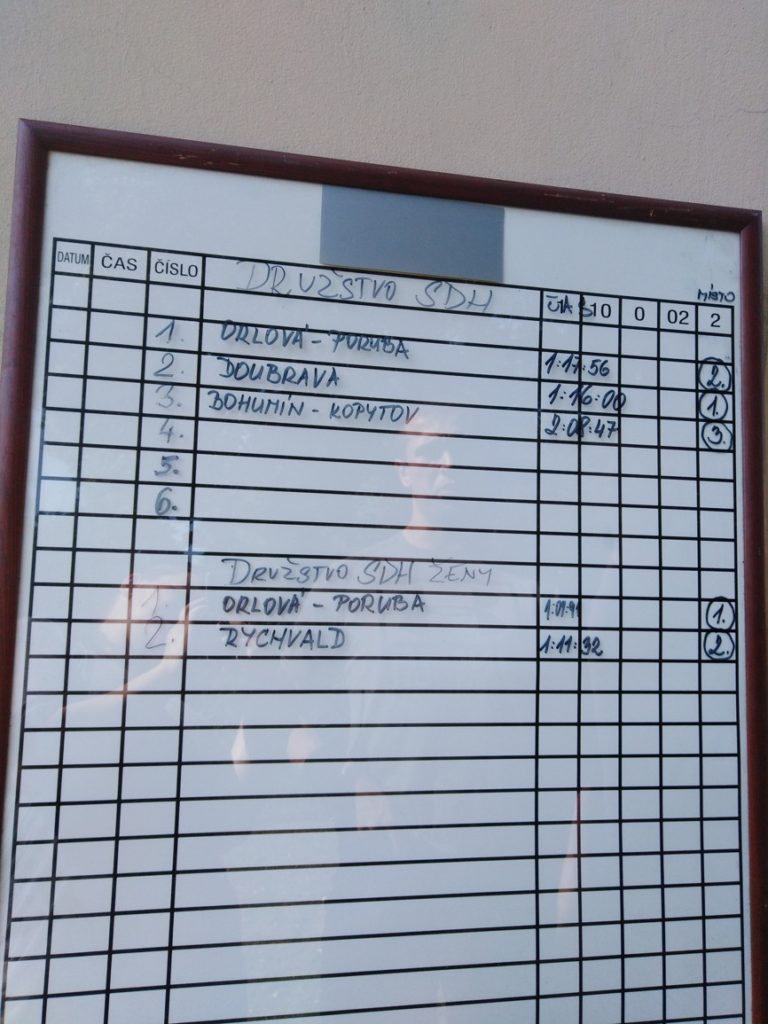 DATUM ČAS ČÍSLO DRUŽSTVO SDH ČAS 10 0 02 MÍSTO 2
1. ORLOVÁ - PORUBA 1:17:56 2.
2. DOUBRAVA 1:16:00 1.
3. BOHUMÍN - KOPYTOV 2:08:47 3.
4.
5.
6.
DRUŽSTVO SDH ŽENY
1. ORLOVÁ - PORUBA 1.
2. RYCHVALD 1:11:32 2.